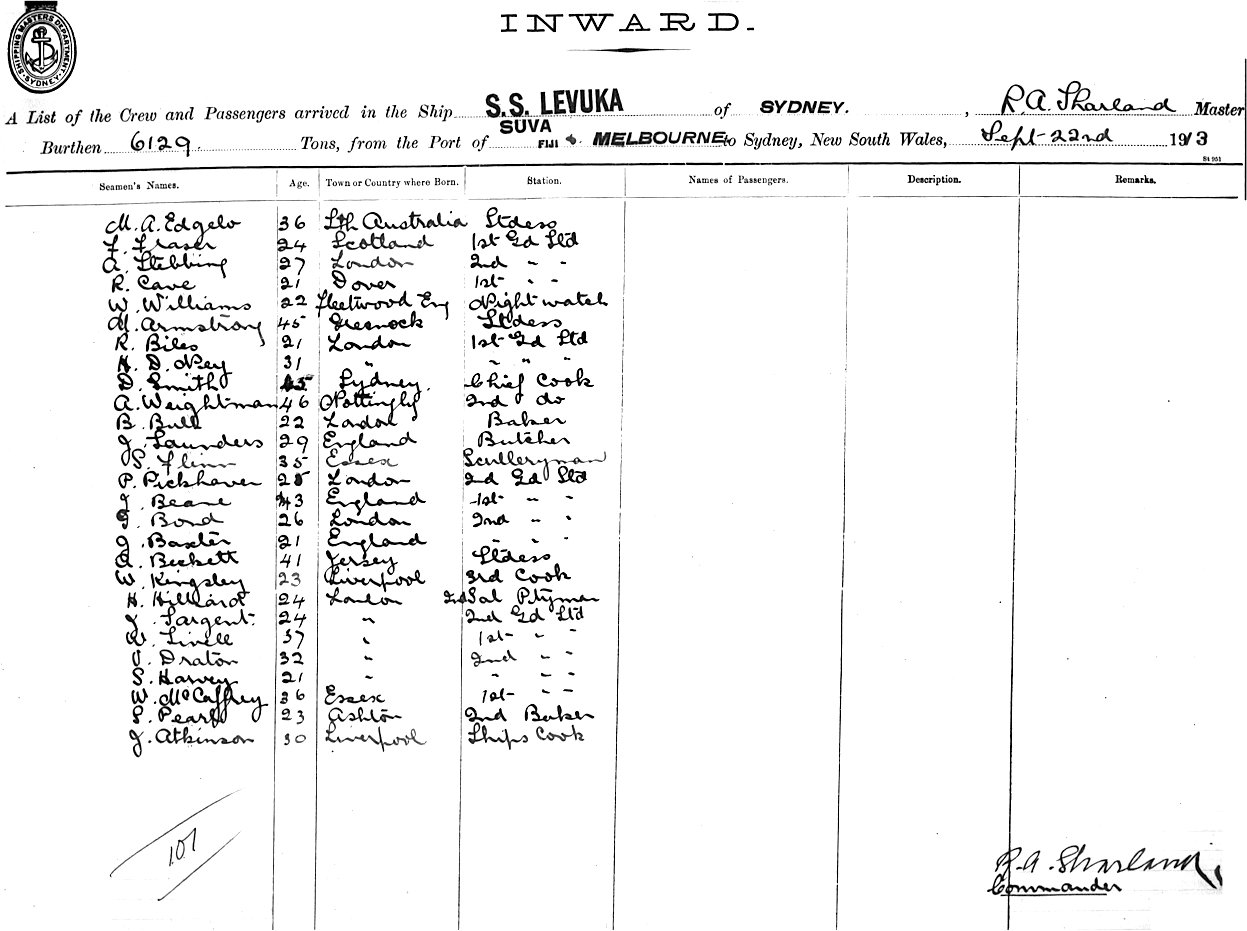 SHIPPING MASTERS DEPARTMENT SYDNEY
INWARD.
A List of the Crew and Passengers arrived in the Ship S.S. LEVUKA of SYDNEY. , R.A. Sharland Master
Burthen 6129 Tons, from the Port of SUVA FIJI & MELBOURNE to Sydney, New South Wales, Sept 22nd 1913
St 951
Seamen's Names. Age. Town or Country where Born. Station. Names of Passengers. Description. Remarks.
M. A. Edgelo 36 Sth Australia Stdess
F. Fraser 24 Scotland 1st Gd Std
A. Stebbing 27 London 2nd " "
R. Cave 21 Dover 1st " "
W. Williams 22 Fleetwood Eng Nightwatch
M. Armstrong 45 Greenock Stdess
R. Biles 21 London 1st Gd Std
H. D. Ney 31 " " " "
D. Smith 45 Sydney. Chief Cook
A. Weightman 46 Nottingly 2nd do
B. Bull 22 London Baker
J. Saunders 29 England Butcher
S. Flinn 35 Essex Sculleryman
P. Pickhaver 25 London 2nd Gd Std
J. Beane 43 England 1st " "
G. Bond 26 London 2nd " "
J. Baxter 21 England " " "
A. Beckett 41 Jersey Stdess
W. Kingsley 23 Liverpool 3rd Cook
H. Hilliard 24 London 2nd Sal Ptyman
J. Sargent. 24 " 2nd Gd Std
W. Linell 37 " 1st " "
V. Draton 32 " 2nd " "
S. Harvey 21 " " " "
W. McCaffrey 36 Essex 1st " "
S. Pearl 23 Ashton 2nd Baker
J. Atkinson 30 Liverpool Ships Cook
107
R. A. Sharland,
Commander